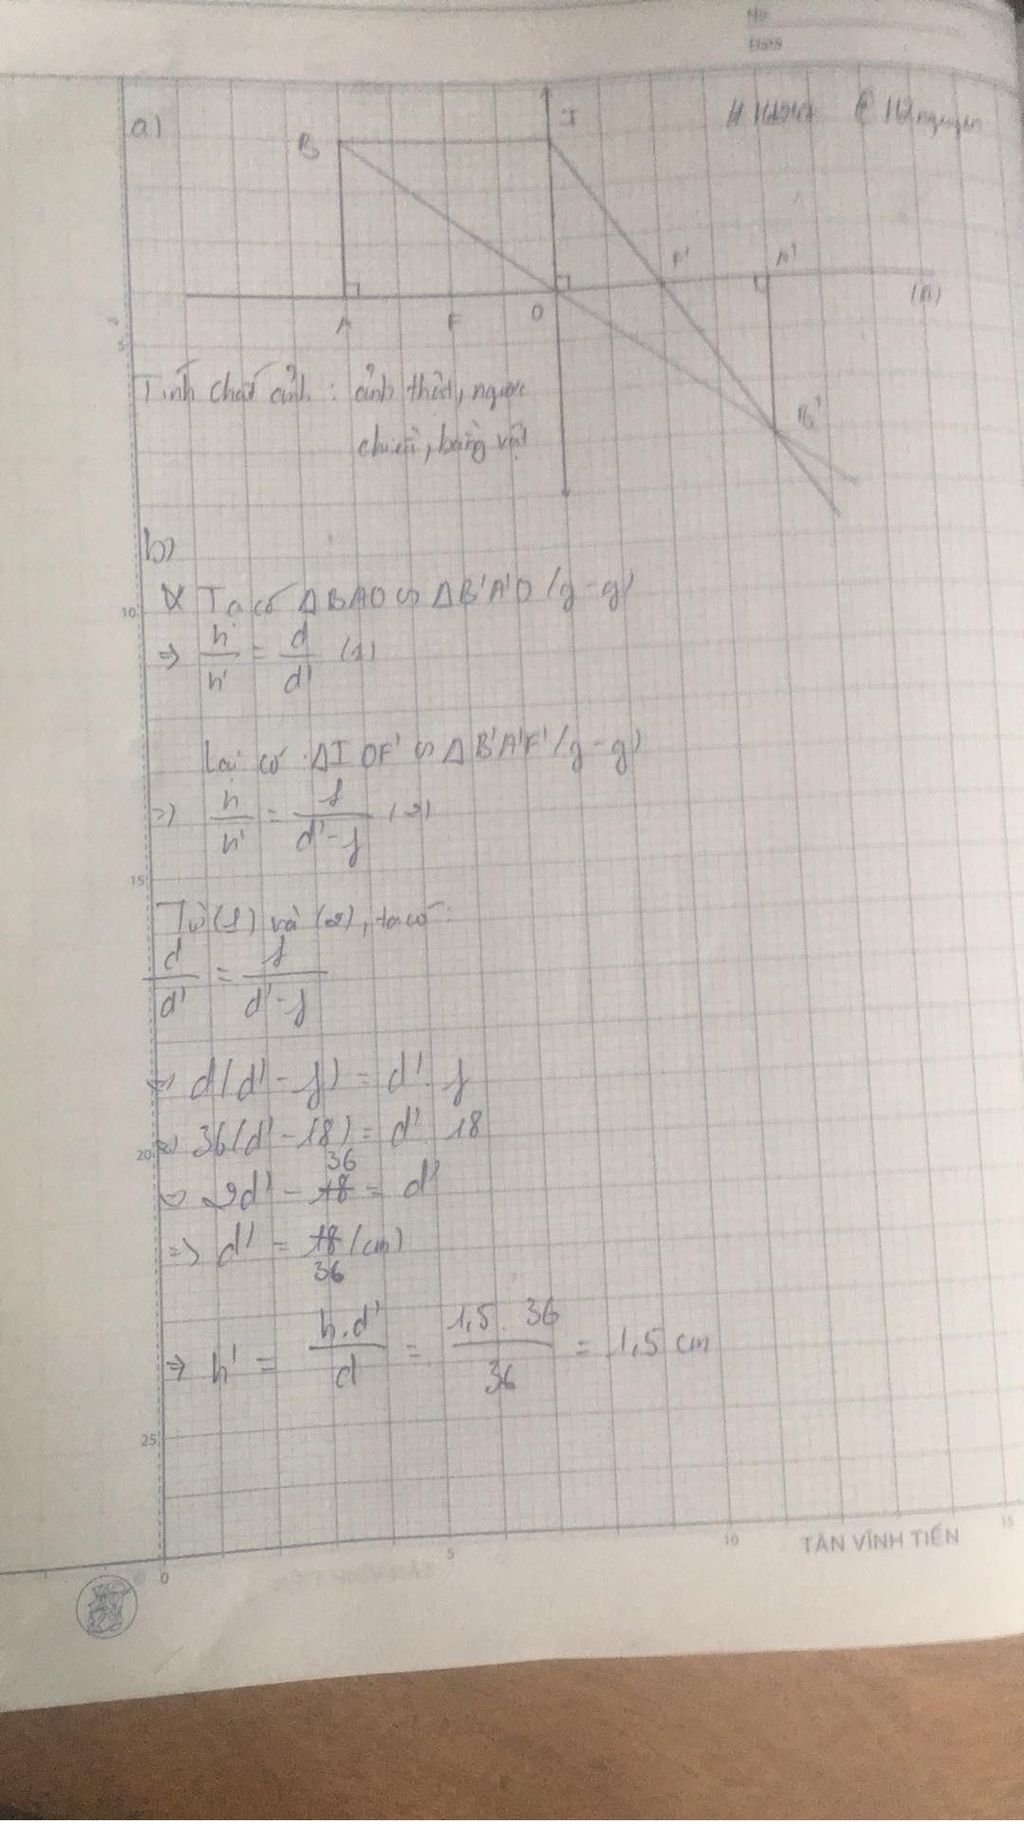 No
Date
a)
I
B
F'
A'
(Δ)
A
F
O
B'
Tính chất ảnh: ảnh thật, ngược
chiều, bằng vật
b)
Ta có ΔBAO ∽ ΔB'A'O (g-g)
⇒ h/h' = d/d' (1)
Lại có ΔIOF' ∽ ΔB'A'F' (g-g)
⇒ h/h' = f/(d'-f) (2)
Từ (1) và (2), ta có:
d/d' = f/(d'-f)
⇔ d(d'-f) = d'.f
⇔ 36(d'-18) = d'.18
⇔ 2d' - 36 = d'
⇒ d' = 36 (cm)
⇒ h' = h.d'/d = 1,5.36/36 = 1,5 cm
5
10
15
20
25
0
5
10
15
TÂN VĨNH TIẾN